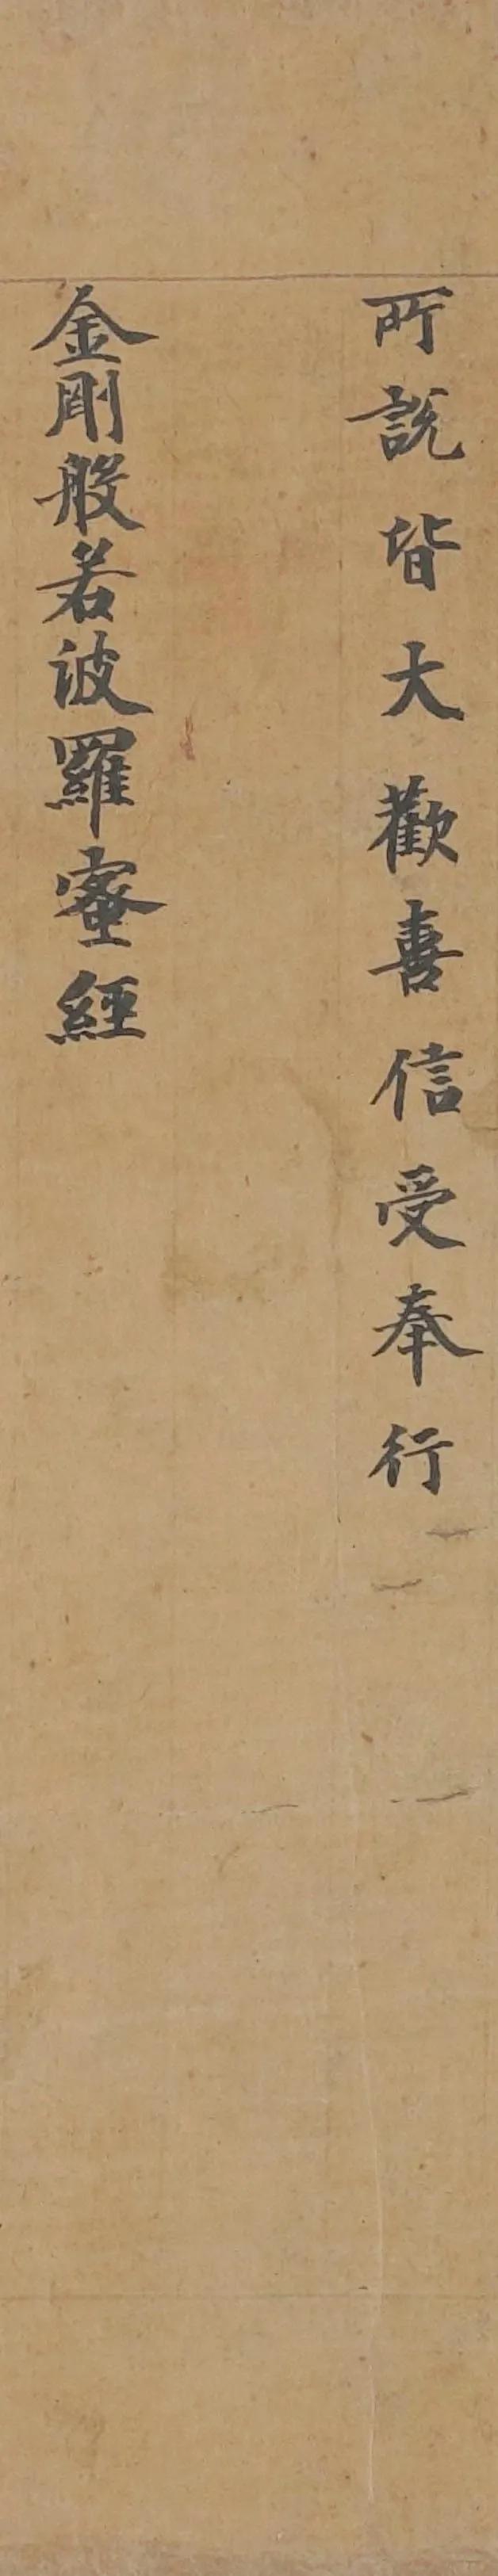 所說皆大歡喜信受奉行
金剛般若波羅蜜經